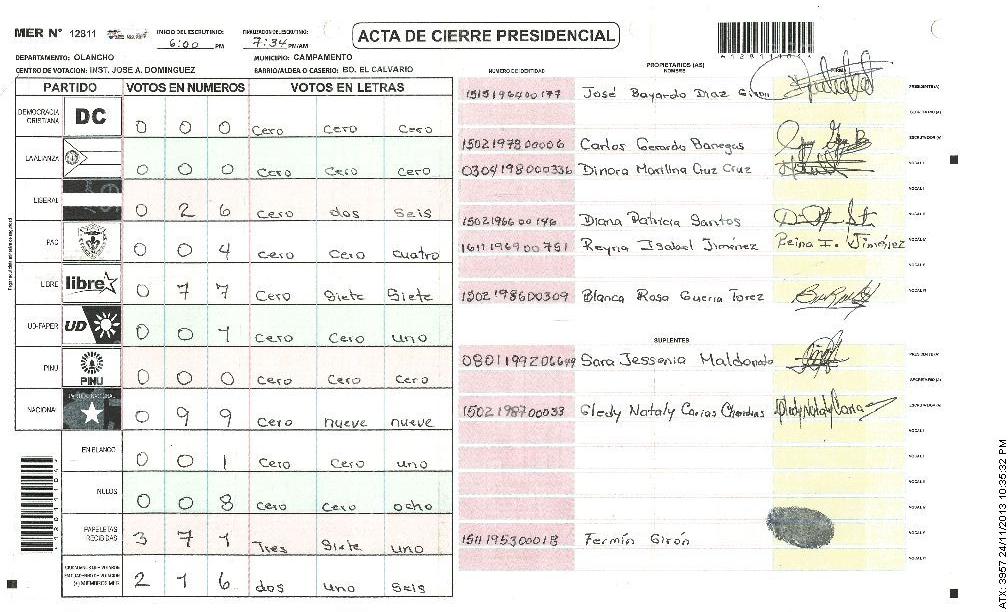 MER N° 12811
INICIO DEL ESCRUTINIO: 6:00 PM
FINALIZACION DEL ESCRUTINIO: 7:34 PM/AM
ACTA DE CIERRE PRESIDENCIAL
DEPARTAMENTO: OLANCHO
MUNICIPIO: CAMPAMENTO
CENTRO DE VOTACION: INST. JOSE A. DOMINGUEZ
BARRIO/ALDEA O CASERIO: BO. EL CALVARIO
PARTIDO VOTOS EN NUMEROS VOTOS EN LETRAS
DEMOCRACIA CRISTIANA DC 0 0 0 Cero Cero Cero
LA ALIANZA 0 0 0 Cero Cero Cero
LIBERAL 0 2 6 Cero dos Seis
PAC 0 0 4 Cero Cero cuatro
LIBRE libre 0 7 7 Cero Siete Siete
UD-FAPER UD 0 0 1 Cero Cero uno
PINU PINU 0 0 0 Cero Cero Cero
NACIONAL PARTIDO NACIONAL 0 9 9 Cero nueve nueve
EN BLANCO 0 0 1 Cero Cero uno
NULOS 0 0 8 Cero Cero ocho
PAPELETAS RECIBIDAS 3 7 1 Tres Siete uno
2 1 6 dos uno Seis
NUMERO DE IDENTIDAD
PROPIETARIOS (AS)
NOMBRE
FIRMA
1515196400177 José Bayardo Diaz Giron PRESIDENTE(A)
SECRETARIO (A)
1502197800006 Carlos Gerardo Banegas ESCRUTADOR (A)
0304198000336 Dinora Marilina Cruz Cruz VOCAL I
VOCAL II
1502196600146 Diana Patricia Santos
1611196900751 Reyna Isabel Jiménez Reina I. Jiménez
1502198600309 Blanca Rosa Guerra Torez
SUPLENTES
0801199206649 Sara Jessenia Maldonado PRESIDENTE(A)
SECRETARIO (A)
1502198700033 Gledy Nataly Carias ESCRUTADOR (A)
1511195300018 Fermín Girón
ATX: 3957 24/11/2013 10:35:32 PM